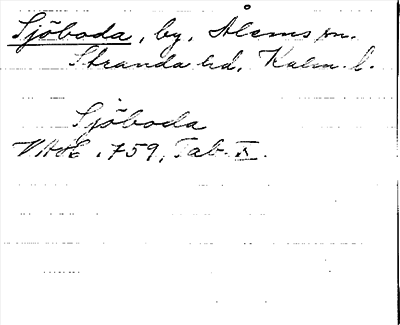 Sjöboda, by, Ålems sn.
Stranda hd, Kalm. l.
Sjöboda
759, Tab. X.